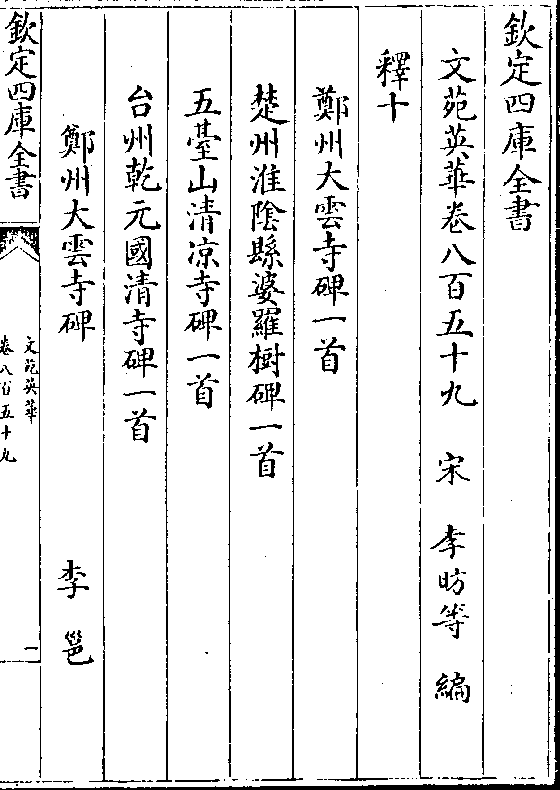 欽定四庫全書
文苑英華卷八百五十九　宋　李昉等　編
釋十
鄭州大雲寺碑一首
楚州淮隂縣婆羅樹碑一首
五臺山清凉寺碑一首
台州乾元國清寺碑一首
鄭州大雲寺碑　李邕
欽定四庫全書
文苑英華
卷八百五十九
一